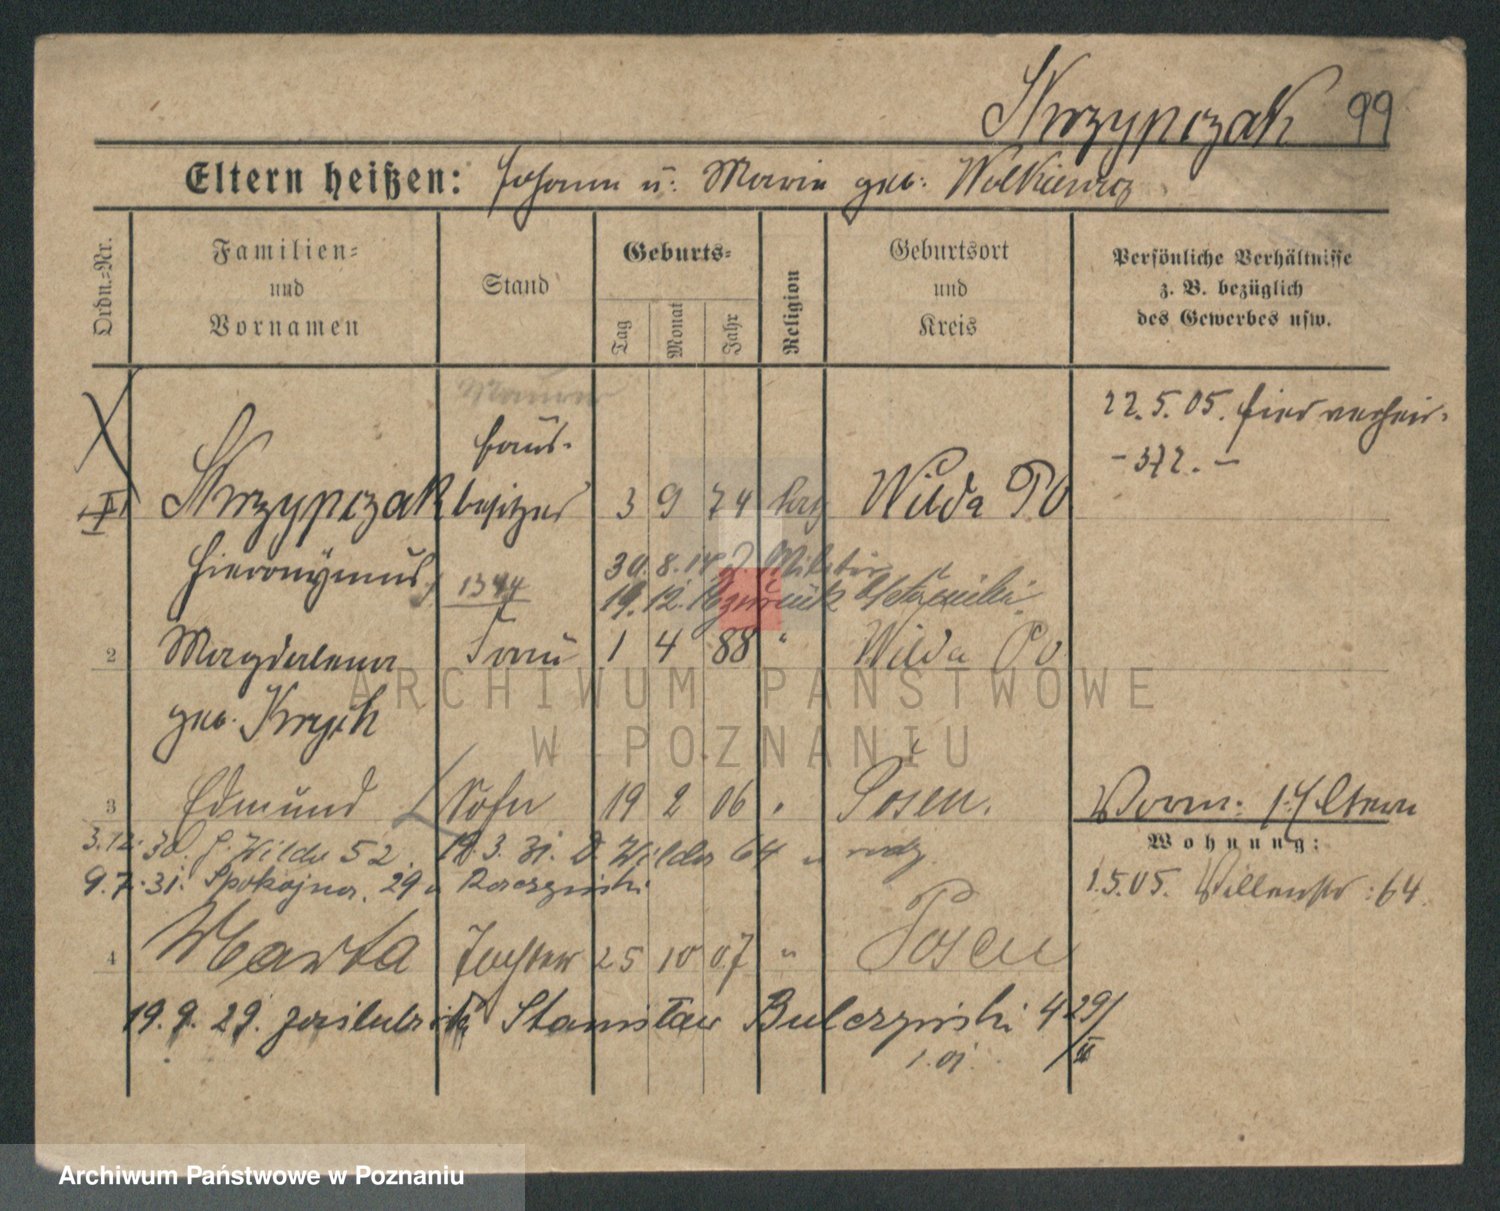 Skrzypczak 99
Eltern heißen: Johann u. Maria geb. Wolkiewicz
Ordn.-Nr.
Familien-
und
Vornamen
Stand
Geburts-
Tag
Monat
Jahr
Religion
Geburtsort
und
Kreis
Persönliche Verhältnisse
z. B. bezüglich
des Gewerbes usw.
Maurer
22.5.05. hier verheir.
- 372. -
Haus-
Skrzypczak besitzer 3 9 74 kath Wilda PO
Hieronÿmus 1344 30.8.14 Militär
19.12. zurück
2 Magdalena Frau 1 4 88 " Wilda PO
geb. Krych
3 Edmund Sohn 19 2 06 " Posen.
Worm: Eltern
Wohnung:
3.12.30. G. Wilda 52. 18.3.31. D. Wilda 64 u rodz.
9.7.31. Spokojna 29 u Raczyński
1.5.05. Villenstr: 64.
4 Marta Tochter 25 10 07 " Posen
19.9.29. zaślubiła Stanisław Bulczyński 429/
II
ARCHIWUM PAŃSTWOWE
W POZNANIU
Archiwum Państwowe w Poznaniu